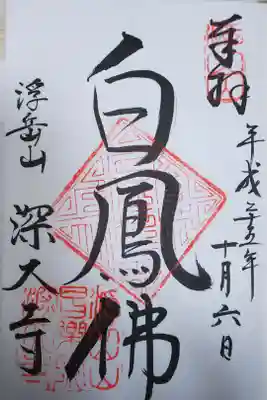 奉拝
平成二十五年
十月六日
白鳳佛
浮岳山
深大寺